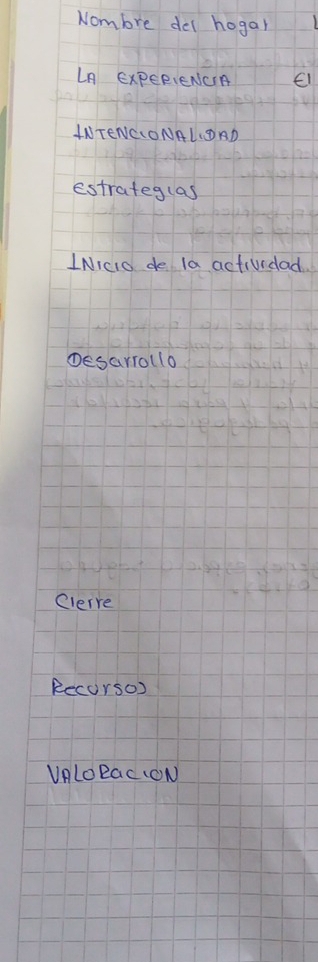 Nombre del hogar
LA EXPERIENCIA El
INTENCIONALIDAD
Estrategias
INICIO de la actividad
Desarrollo
Cierre
Recursos
VALORACION